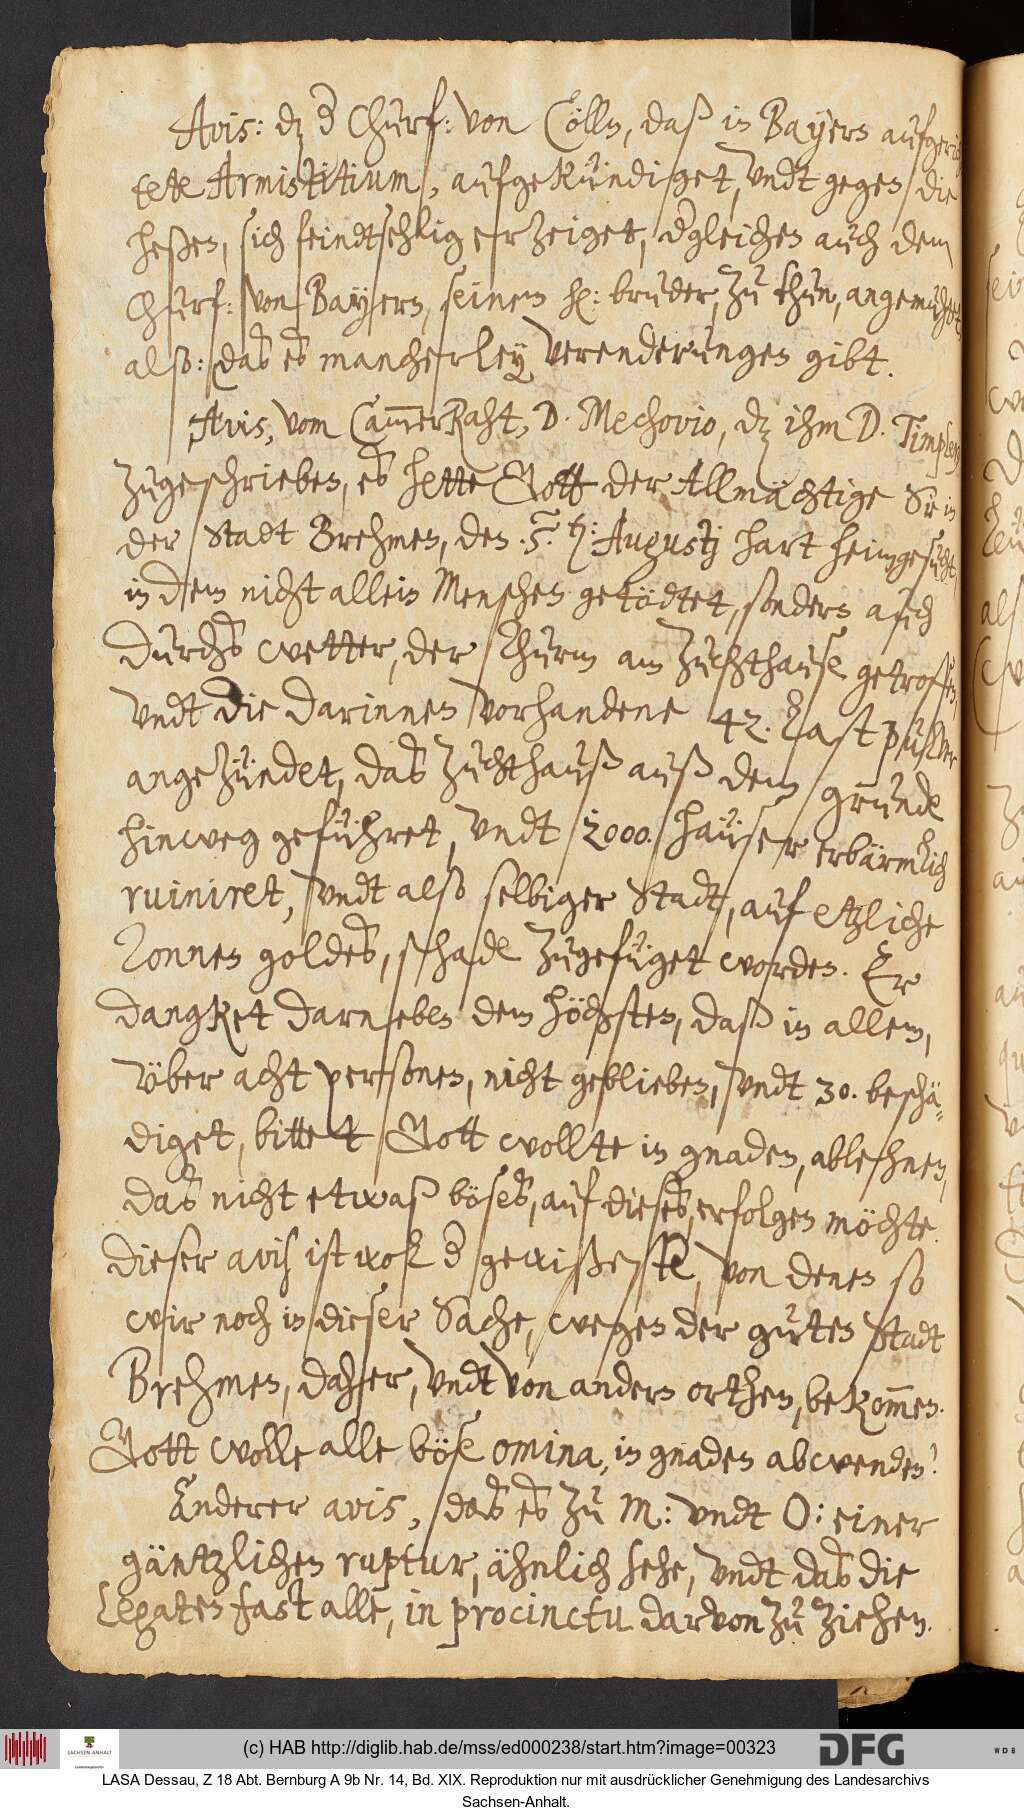 Avis: dz d Churf: von Cölln, daß in Bayern aufgerich
tete Armistitium, aufgekündiget, undt gegen die
Heßen, sich feindtsehlig erzeiget, dgleichen auch dem
Churf: von Bayern, seinem H: bruder, zu thun, angemuhtet,
also: das es mancherley verenderungen gibt.
Avis, vom Cam̄erRaht, D. Mechovio, dz ihm D. Timpler,
zugeschrieben, es hette Gott der Allmächtige Sie in
der Stadt Brehmen, den Augustj hart heimgesucht,
in dem nicht allein Menschen getödtet, sondern auch
durchs wetter, der Thurm am Zuchthause getroffen,
undt die darinnen vorhandene 42. Last pulver
angezündet, das Zuchthauß auß dem grunde
hinweg geführet, undt 2000. häuser erbärmlich
ruiniret, undt also selbiger Stadt, auf etzliche
Tonnen goldes, schade zugefüget worden. Er
dangket darneben dem höchsten, daß in allem,
über acht personen, nicht geblieben, undt 30. beschä-
diget, bittet Gott wollte in gnaden, ablehnen,
das nicht etwaß böses, auf dieses, erfolgen möchte.
dieser avis ist wol d gewißeste, von denen so
wir noch in dieser Sache, wegen der guten Stadt
Brehmen, daher, undt von andern orthen, bekom̄en.
Gott wolle alle böse omina, in gnaden abwenden!
Anderer avis, das es zu M: undt O: einer
gäntzlichen ruptur, ähnlich sehe, undt das die
Legaten fast alle, in procinctu darvon zu ziehen.
(c) HAB http://diglib.hab.de/mss/ed000238/start.htm?image=00323
SACHSEN-ANHALT
DFG
WDB
LASA Dessau, Z 18 Abt. Bernburg A 9b Nr. 14, Bd. XIX. Reproduktion nur mit ausdrücklicher Genehmigung des Landesarchivs
Sachsen-Anhalt.